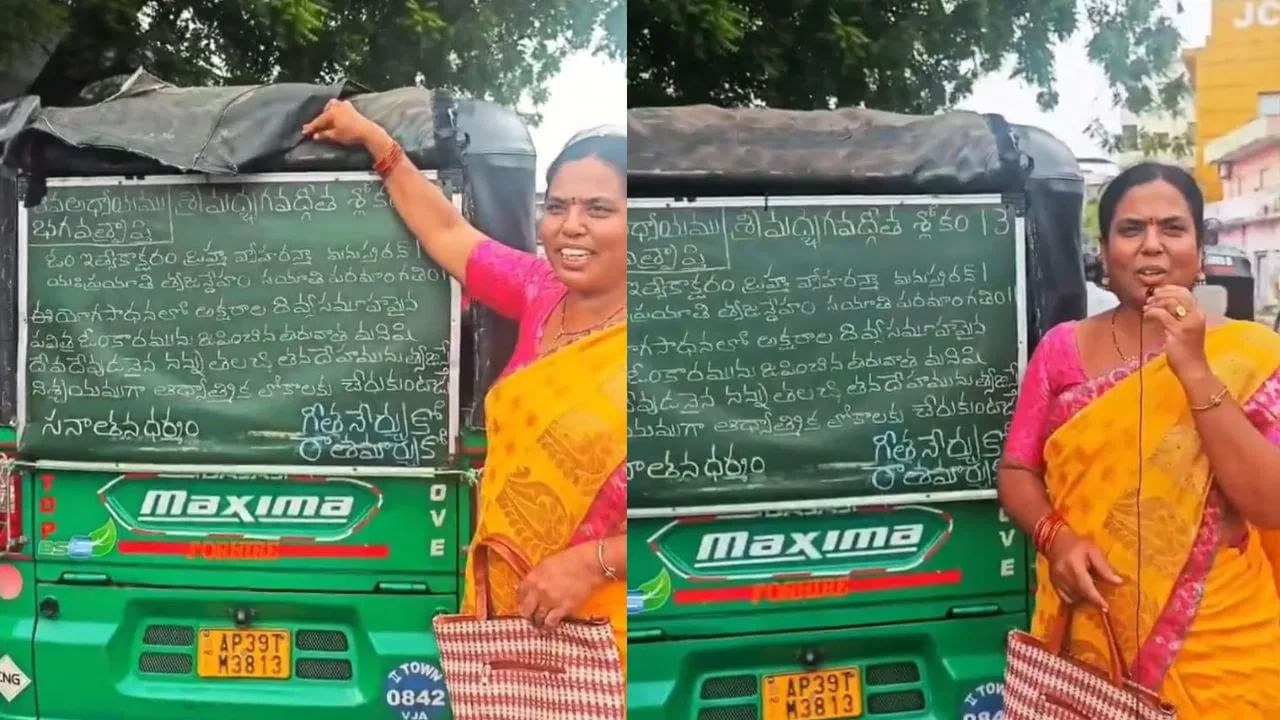 అధ్యాయము శ్రీమద్భగవద్గీత శ్లోకం
భగవత్ప్రాప్తి
ఓం ఇత్యేకాక్షరం బ్రహ్మ వ్యాహరన్మా మనుస్మరన్ |
యఃప్రయాతి త్యజన్దేహం సయాతి పరమాంగతిం||
ఈయోగసాధనలో అక్షరాల దివ్యసమూహమైన
పవిత్ర ఓంకారమును జపించిన తరువాత మనిషి
దేవదేవుడనైన నన్ను తలచి తనదేహమును త్యజిస్తే
నిశ్చయముగా ఆధ్యాత్మిక లోకాలకు చేరుకుంటాడు
సనాతనధర్మం
గీతనేర్చుకో
రాతమార్చుకో
TOP
maxima
OVE
FORHIRE
AP39T
M3813
CNG
II TOWN
0842
VJA
JC
శ్రీమద్భగవద్గీత శ్లోకం 13
ఇత్యేకాక్షరం బ్రహ్మ వ్యాహరన్మా మనుస్మరన్ |
త్యజన్దేహం సయాతి పరమాంగతిం||
అక్షరాల దివ్యసమూహమైన
ఓంకారమును జపించిన తరువాత మనిషి
నన్ను తలచి తనదేహమును త్యజిస్తే
ఆధ్యాత్మిక లోకాలకు చేరుకుంటాడు
గీతనేర్చుకో
రాతమార్చుకో
maxima
OVE
FORHIRE
AP39T
M3813
II TOW
084